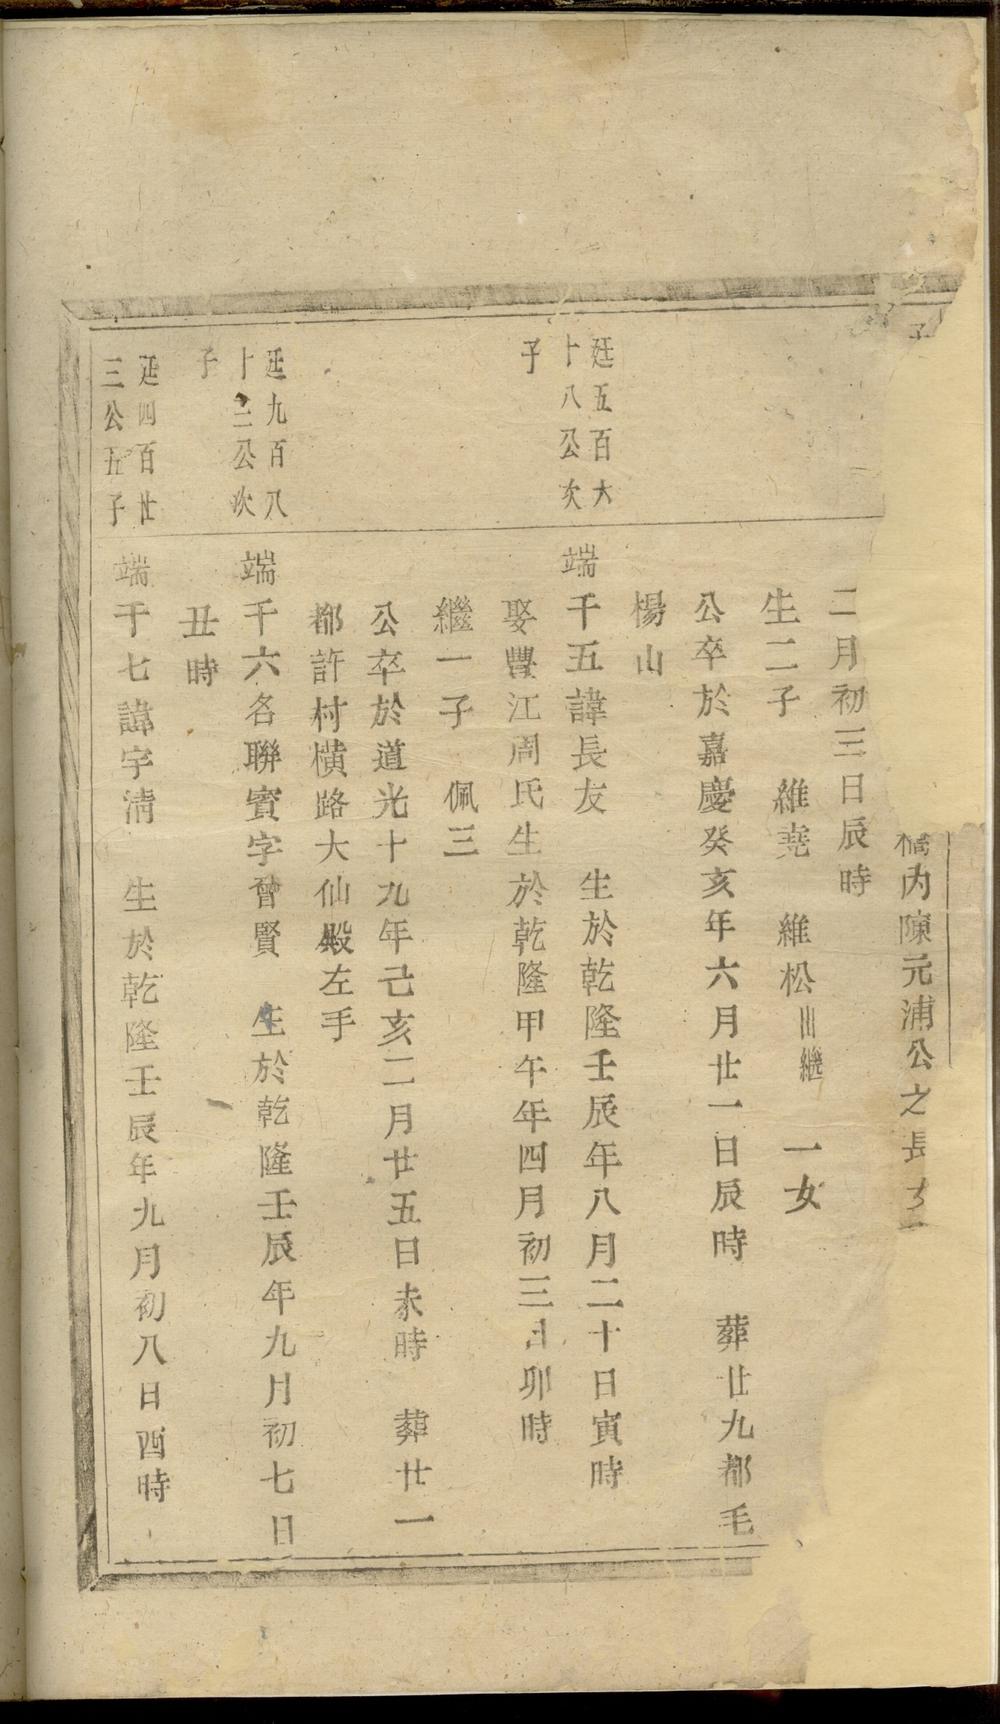 子
橋內陳元浦公之長女
二月初三日辰時
生二子　維堯　維松出繼　一女
公卒於嘉慶癸亥年六月廿一日辰時　葬廿九都毛
楊山
廷五百六
十八公次
子
端千五諱長友　生於乾隆壬辰年八月二十日寅時
娶豐江周氏生於乾隆甲午年四月初三日卯時
繼一子　佩三
公卒於道光十九年己亥二月廿五日未時　葬廿一
都許村橫路大仙殿左手
廷九百八
十三公次
子
端千六名聯賓字晉賢　生於乾隆壬辰年九月初七日
丑時
廷四百廿
三公五子
端千七諱宇清　生於乾隆壬辰年九月初八日酉時